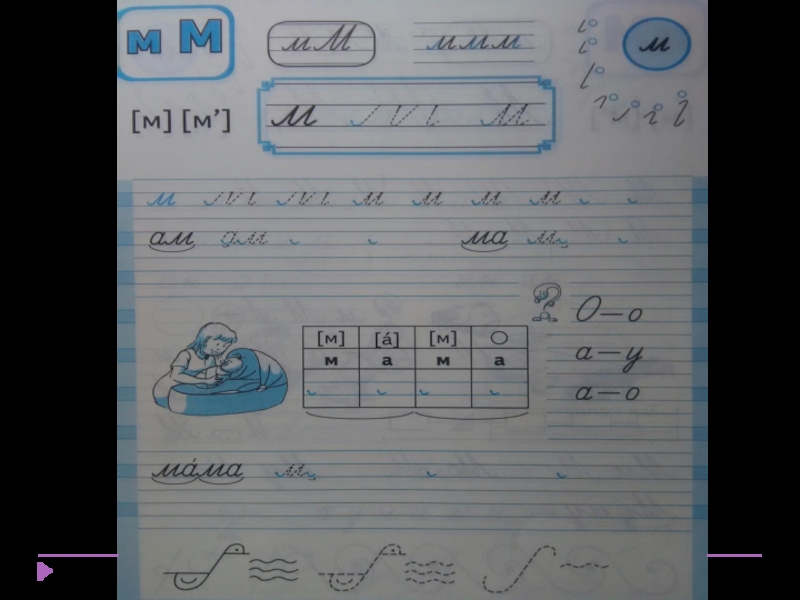 м М
мМ
м м м
м
[м] [м’]
м м
м м м м м м
ам ам ма м
[м] [á] [м] О
м а м а
О – о
а – у
а – о
ма́ма м